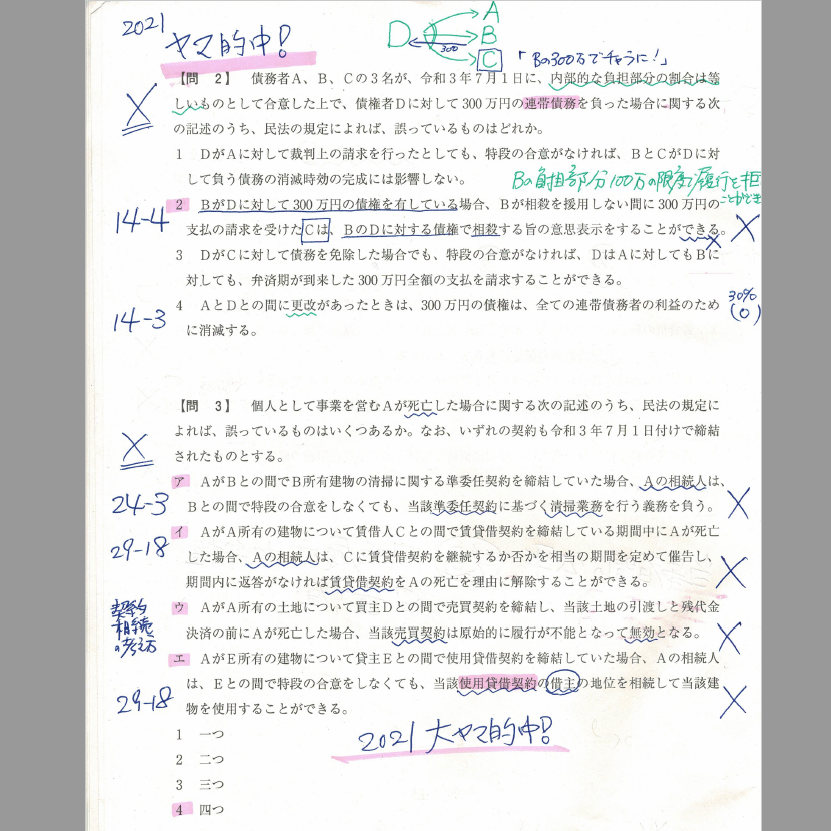 2021
ヤマ的中!
D
A
B
C
300
「Bの300万でチャラに!」
【問 2】 債務者A、B、Cの3名が、令和3年7月1日に、内部的な負担部分の割合は等
しいものとして合意した上で、債権者Dに対して300万円の連帯債務を負った場合に関する次
の記述のうち、民法の規定によれば、誤っているものはどれか。
×
1 DがAに対して裁判上の請求を行ったとしても、特段の合意がなければ、BとCがDに対
して負う債務の消滅時効の完成には影響しない。
Bの負担部分100万の限度で履行を拒
ことができ
2 BがDに対して300万円の債権を有している場合、Bが相殺を援用しない間に300万円の
支払の請求を受けたCは、BのDに対する債権で相殺する旨の意思表示をすることができる。
14-4
×
×
3 DがCに対して債務を免除した場合でも、特段の合意がなければ、DはAに対してもBに
対しても、弁済期が到来した300万円全額の支払を請求することができる。
4 AとDとの間に更改があったときは、300万円の債権は、全ての連帯債務者の利益のため
に消滅する。
14-3
30%
(○)
【問 3】 個人として事業を営むAが死亡した場合に関する次の記述のうち、民法の規定に
よれば、誤っているものはいくつあるか。なお、いずれの契約も令和3年7月1日付けで締結
されたものとする。
×
ア AがBとの間でB所有建物の清掃に関する準委任契約を締結していた場合、Aの相続人は、
Bとの間で特段の合意をしなくても、当該準委任契約に基づく清掃業務を行う義務を負う。
24-3
×
イ AがA所有の建物について賃借人Cとの間で賃貸借契約を締結している期間中にAが死亡
した場合、Aの相続人は、Cに賃貸借契約を継続するか否かを相当の期間を定めて催告し、
期間内に返答がなければ賃貸借契約をAの死亡を理由に解除することができる。
29-18
×
ウ AがA所有の土地について買主Dとの間で売買契約を締結し、当該土地の引渡しと残代金
決済の前にAが死亡した場合、当該売買契約は原始的に履行が不能となって無効となる。
契約
相続
の考え方
×
エ AがE所有の建物について貸主Eとの間で使用貸借契約を締結していた場合、Aの相続人
は、Eとの間で特段の合意をしなくても、当該使用貸借契約の借主の地位を相続して当該建
物を使用することができる。
29-18
×
1 一つ
2 二つ
3 三つ
4 四つ
2021 大ヤマ的中!